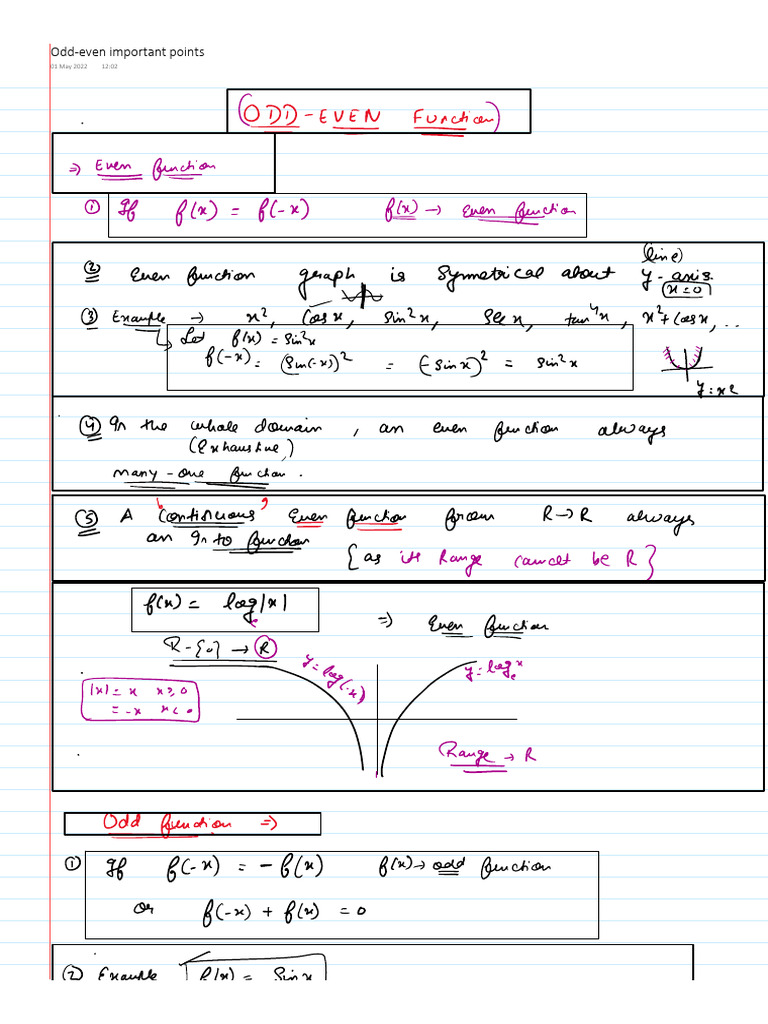 Odd-even important points
01 May 2022 12:02
(ODD-EVEN Function)
⇒ Even function
① If f(x) = f(-x) f(x) → Even function
② Even function graph is Symmetrical about (line) y-axis.
x=0
③ Example → x², Cosx, sin²x, Secx, tan⁴x, x²+Cosx, ..
Let f(x) = Sin²x
f(-x) = (Sin(-x))² = (-Sinx)² = Sin²x
y=x²
④ In the whole domain, an even function always
(Exhaustive)
many-one function.
⑤ A "Continuous" Even function from R→R always
an Into function {as its Range cannot be R}
f(x) = log|x| ⇒ Even function
R-{0} → R
y=log(-x)
y=logₑx
|x| = x x≥0
= -x x<0
Range → R
Odd function ⇒
① If f(-x) = -f(x) f(x)→odd function
or f(-x) + f(x) = 0
② Example f(x) = Sinx